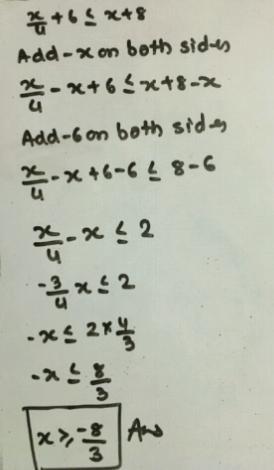 x/4 + 6 ≤ x + 8
Add -x on both sides
x/4 - x + 6 ≤ x + 8 - x
Add -6 on both sides
x/4 - x + 6 - 6 ≤ 8 - 6
x/4 - x ≤ 2
-3/4 x ≤ 2
-x ≤ 2 × 4/3
-x ≤ 8/3
x ≥ -8/3 Ans